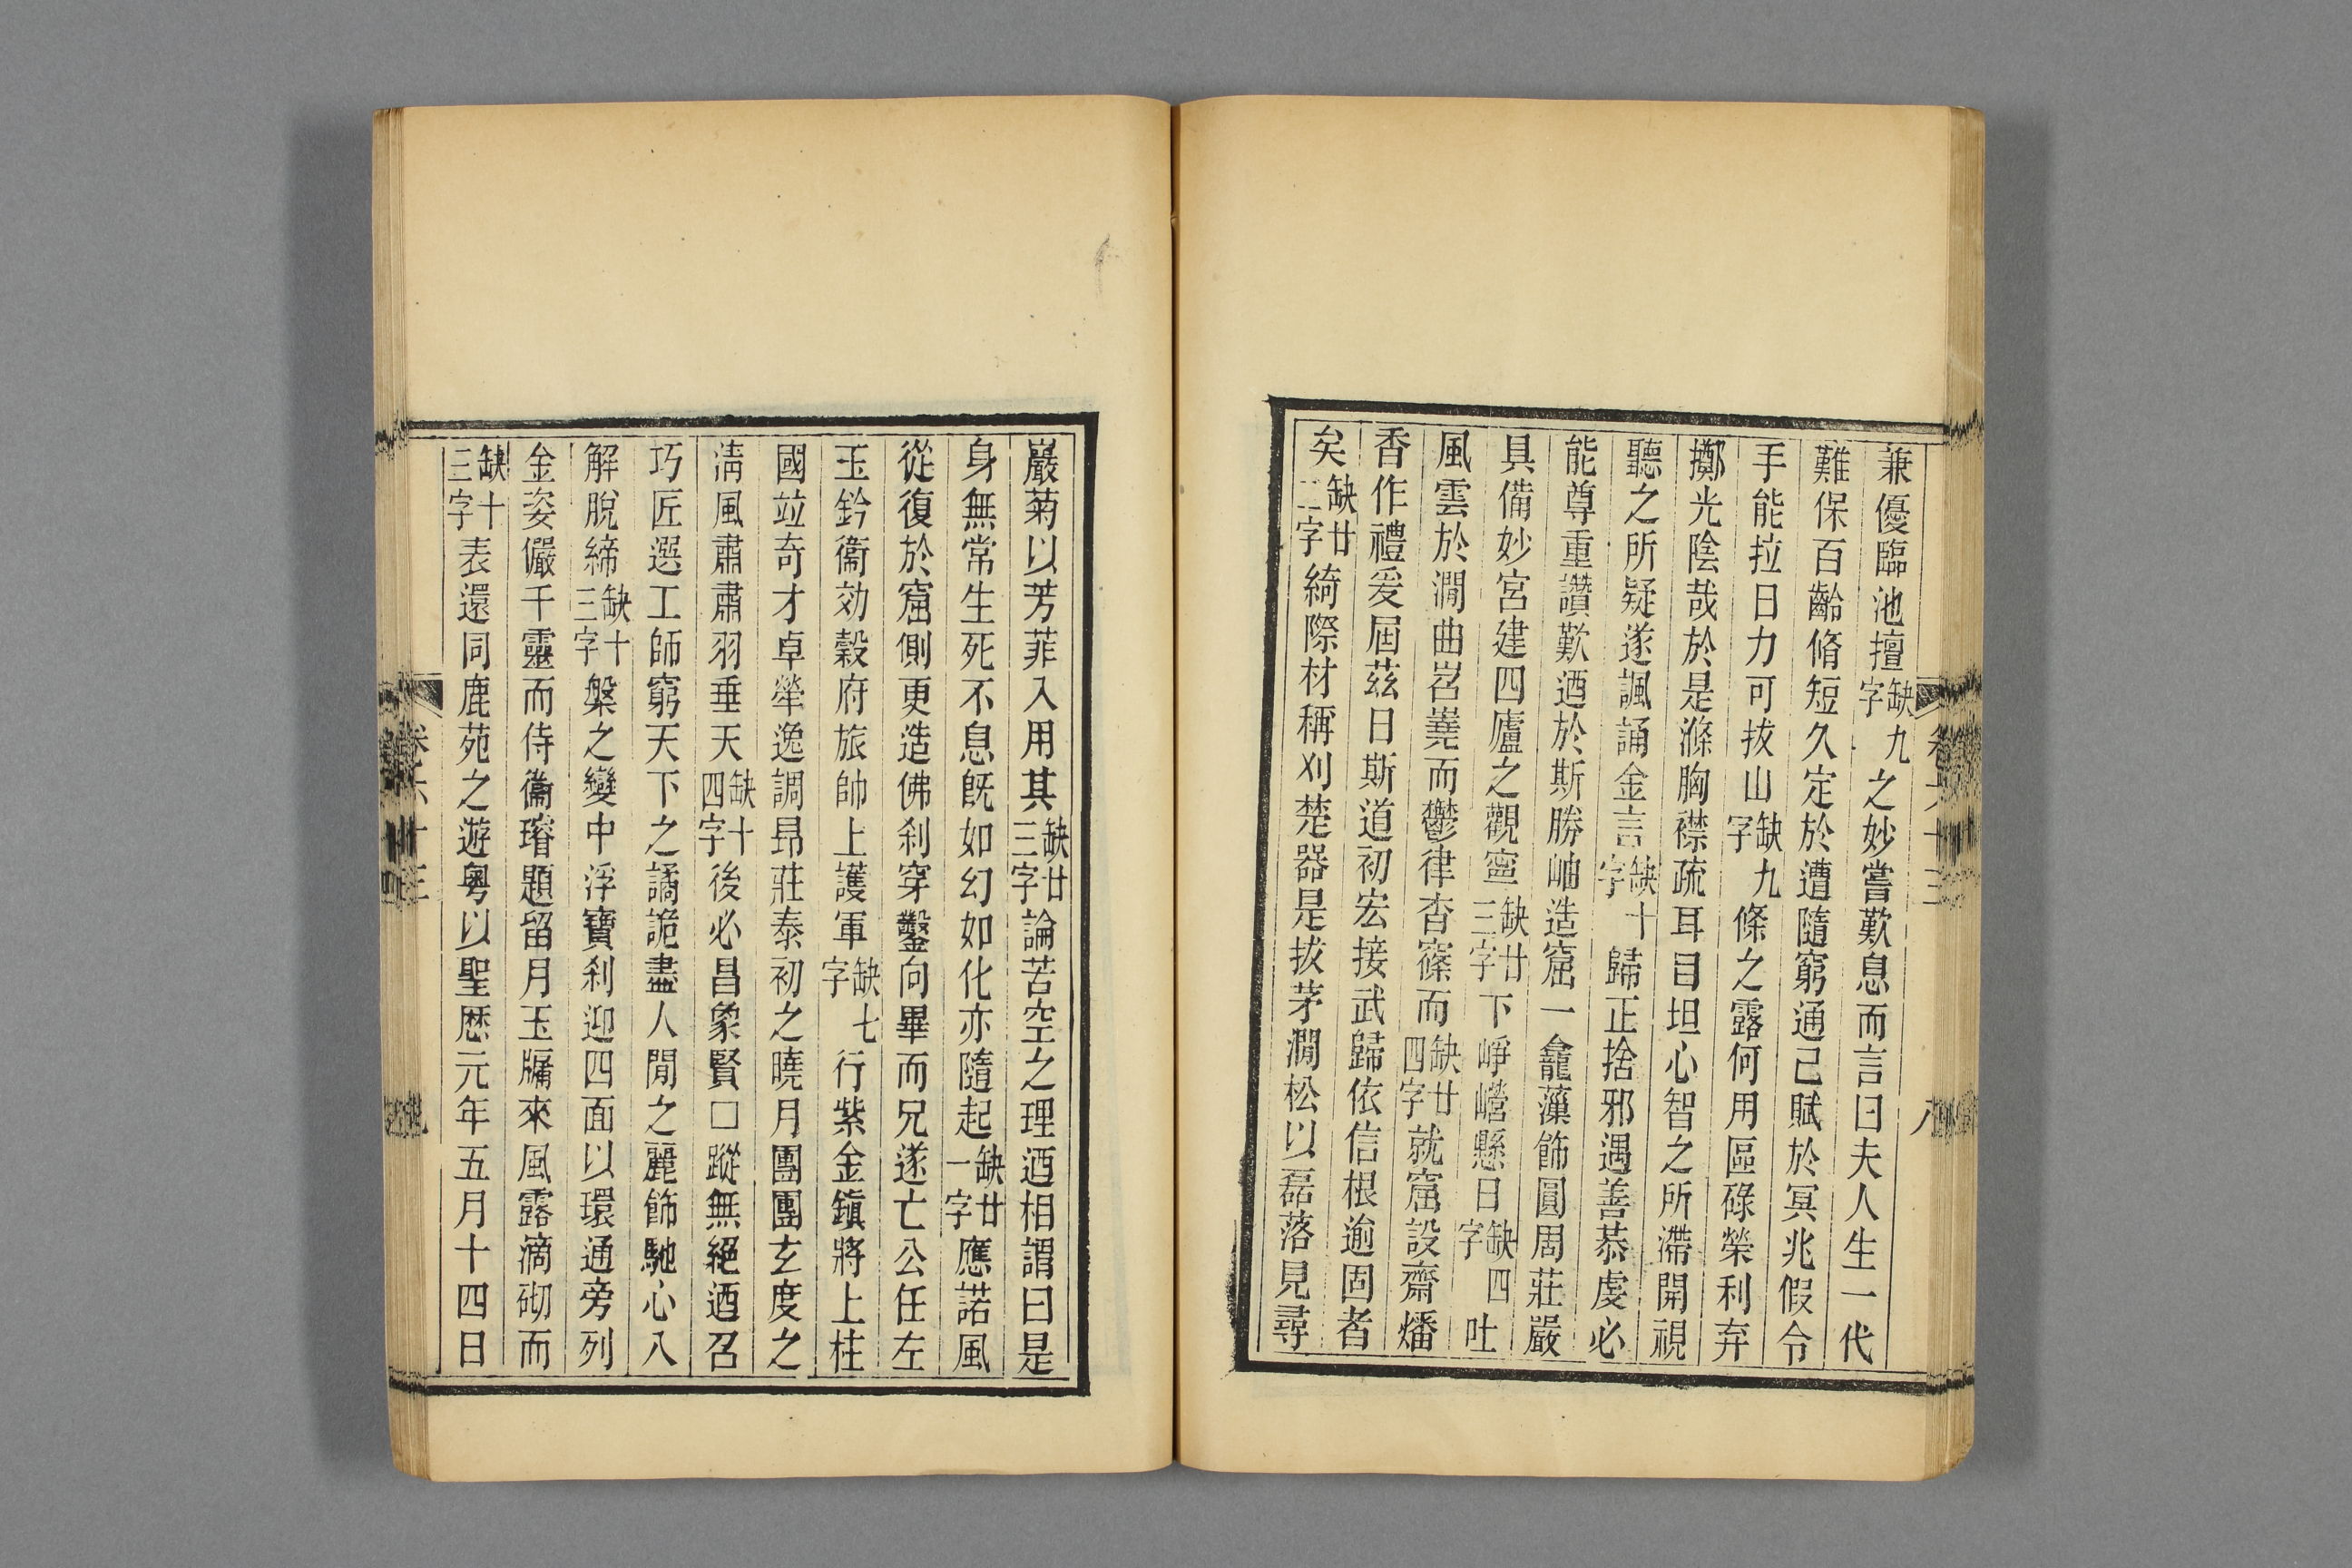 兼優臨池擅缺九字之妙嘗歎息而言曰夫人生一代
難保百齡脩短久定於遭隨窮通已賦於冥兆假令
手能拉日力可拔山缺九字條之露何用區碌榮利弃
擲光陰哉於是滌胸襟疏耳目坦心智之所滯開視
聽之所疑遂諷誦金言缺十字歸正捨邪遇善恭虔必
能尊重讚歎迺於斯勝岫造窟一龕藻飾圓周莊嚴
具備妙宮建四廬之觀寧缺廿三字下崢嶸懸日缺四字吐
風雲於澗曲岧嶤而鬱律杳窱而缺廿四字就窟設齋燔
香作禮爰屆茲日斯道初宏接武歸依信根逾固者
矣缺廿二字綺際材稱刈楚器是拔茅澗松以磊落見尋
巖菊以芳菲入用其缺廿三字論苦空之理迺相謂曰是
身無常生死不息既如幻如化亦隨起缺廿一字應諾風
從復於窟側更造佛刹穿鑿向畢而兄遂亡公任左
玉鈐衞効穀府旅帥上護軍缺七字行紫金鎭將上柱
國竝奇才卓犖逸調昂莊泰初之曉月團團玄度之
清風肅肅羽垂天缺十四字後必昌象賢□蹤無絕迺召
巧匠選工師窮天下之譎詭盡人閒之麗飾馳心八
解脫締缺十三字槃之變中浮寶刹迎四面以環通旁列
金姿儼千靈而侍衞璿題留月玉牖來風露滴砌而
缺十三字表還同鹿苑之遊粵以聖厯元年五月十四日
卷六十三
八
卷六十三